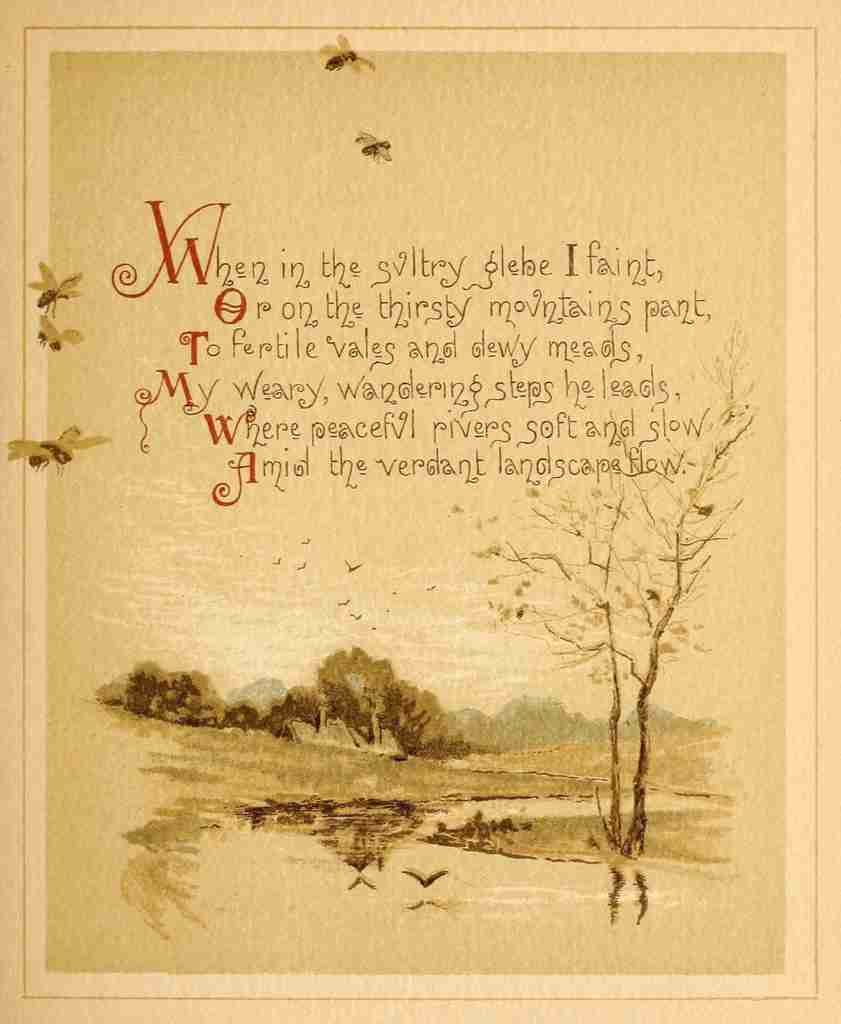 When in the sultry glebe I faint,
Or on the thirsty mountains pant,
To fertile vales and dewy meads,
My weary, wandering steps he leads,
Where peaceful rivers soft and slow
Amid the verdant landscape flow.